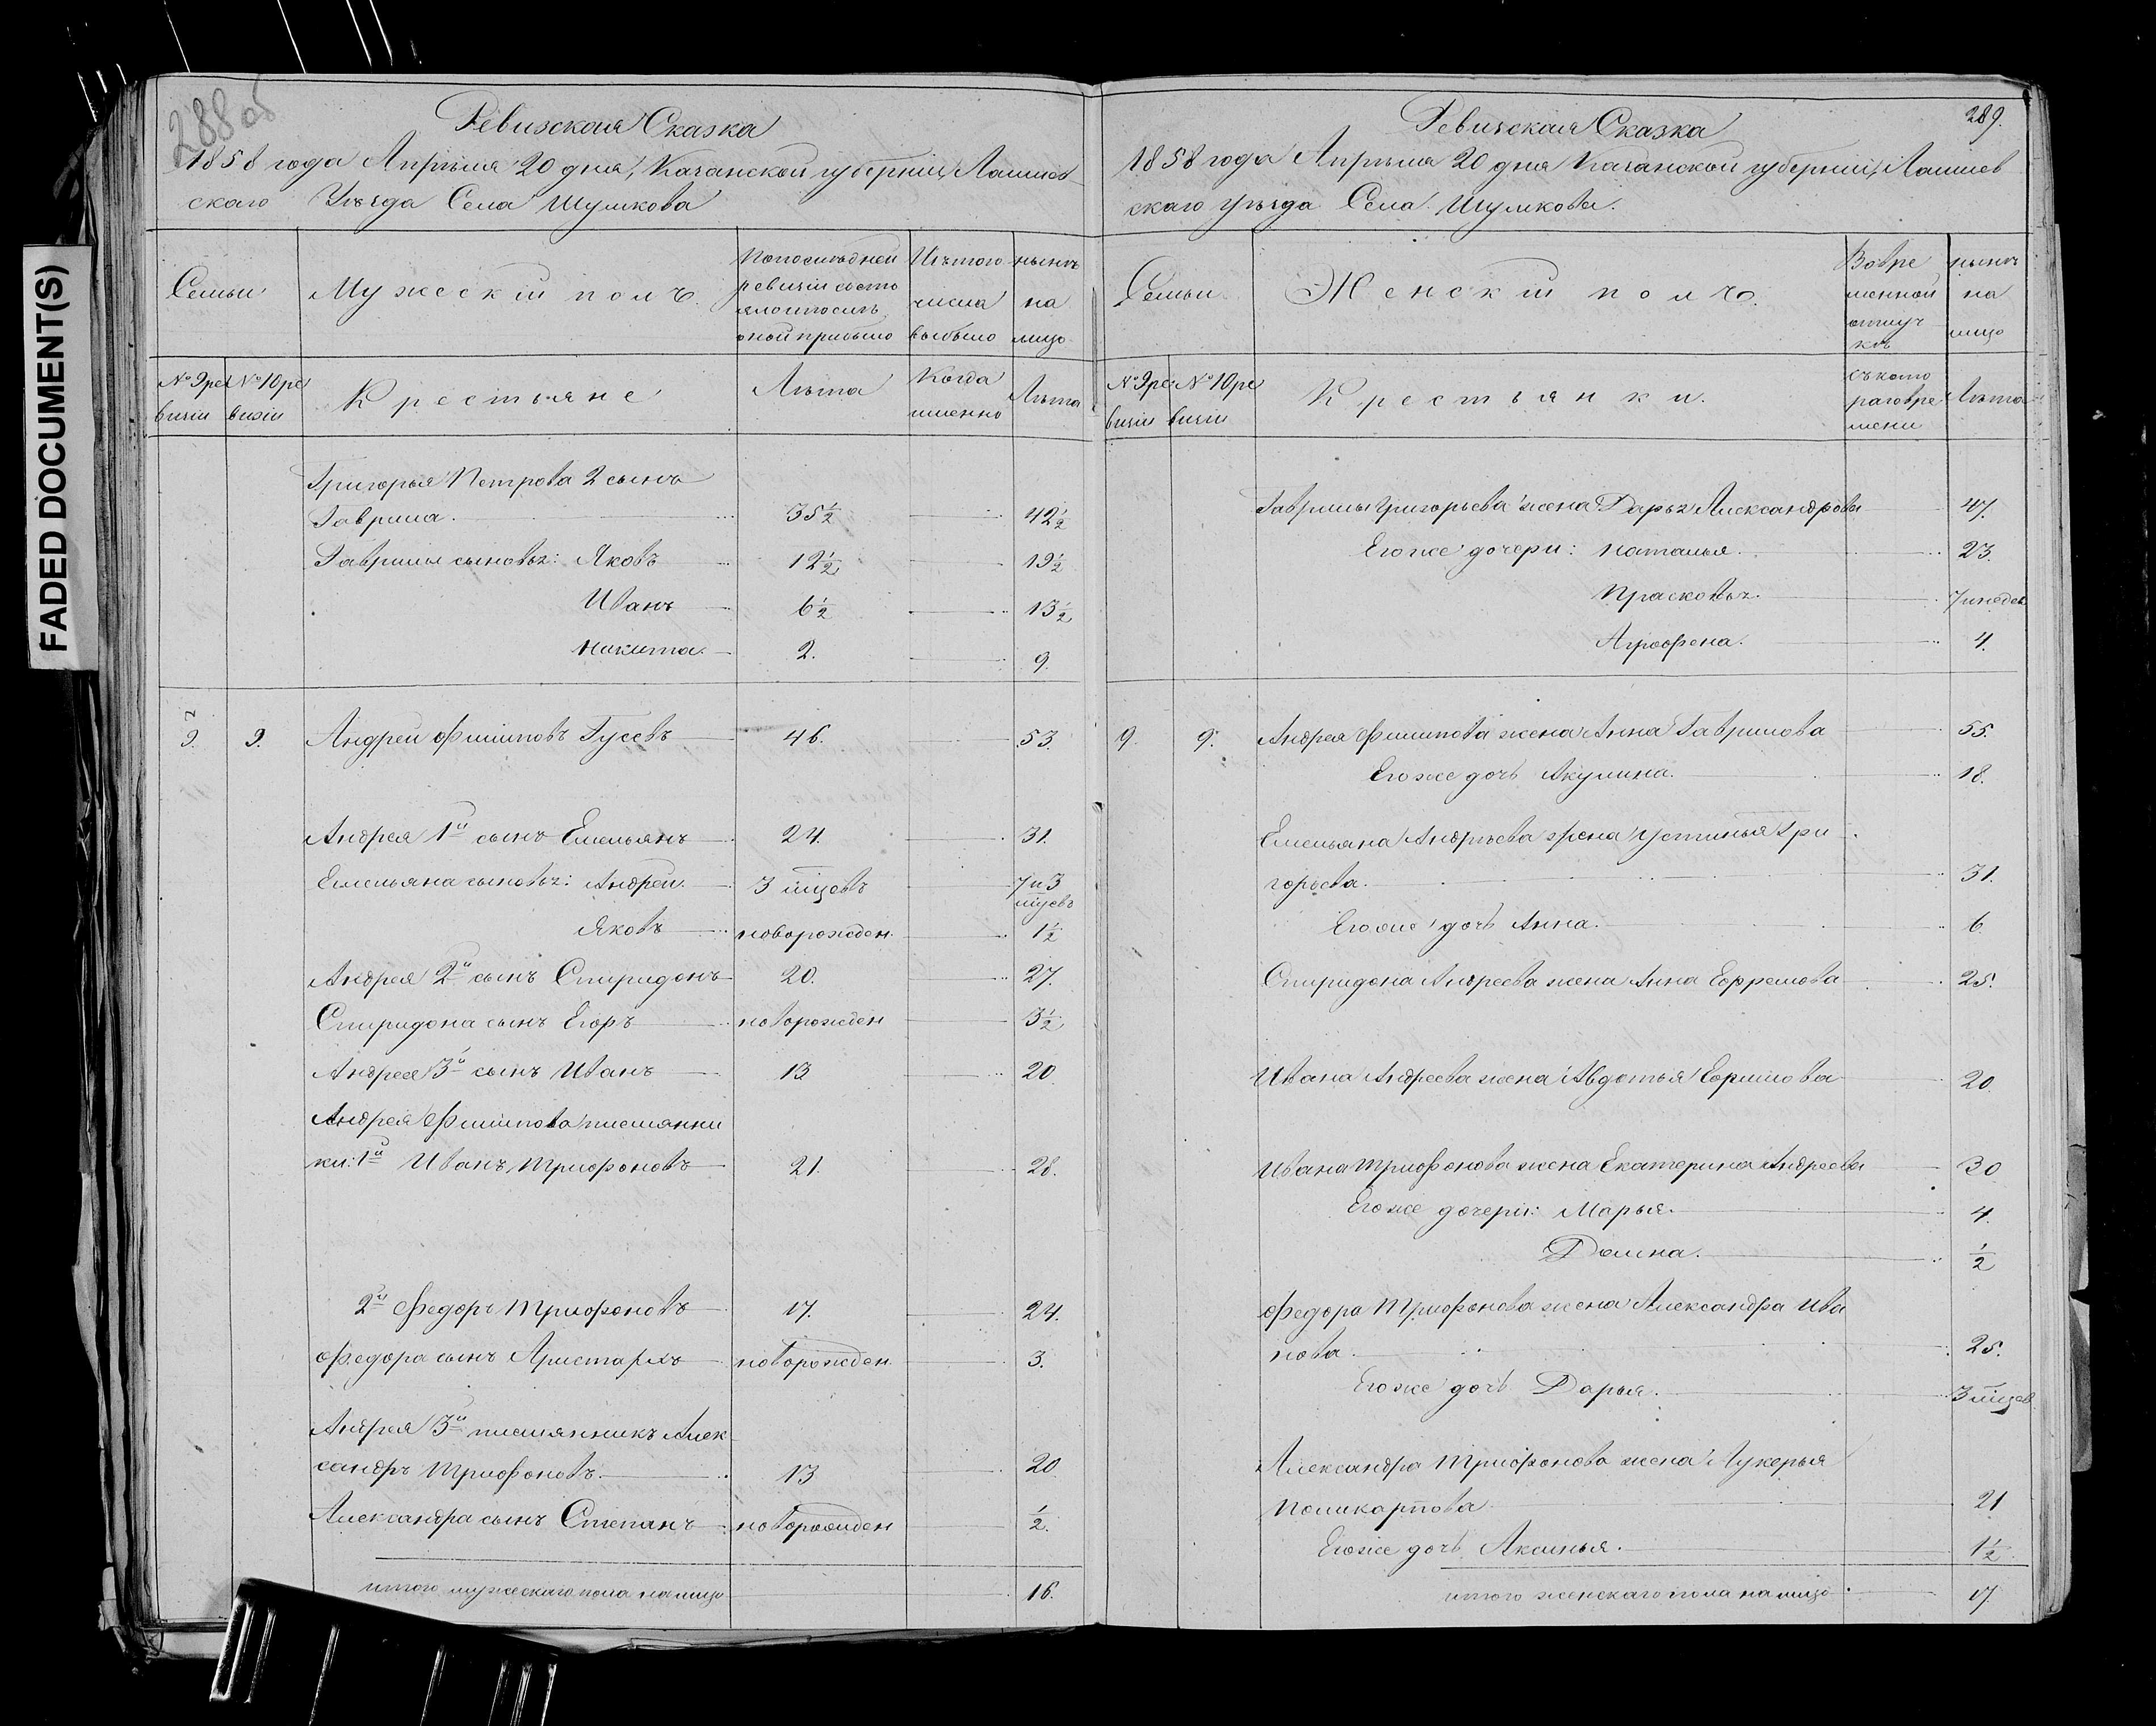 FADED DOCUMENT(S)
288 об
Ревизская Сказка
1858 года Апрѣля 20 дня, Казанской губерніи, Лаишев
скаго Уѣзда Села Шумкова
Семьи
Мужескій полъ.
По послѣдней
ревизіи состо
яло и послѣ
оной прибыло
Изъ того
числа
выбыло
нынѣ
на
лицо
№ 9 ре
визіи
№ 10 ре
визіи
Крестьяне
Лѣта
Когда
именно
Лѣта
Григорья Петрова 2 сынъ
Гаврила. 35½ 42½
Гаврилы сыновья: Яковъ 12½ 19½
Иванъ 6½ 13½
Никита. 2. 9.
9. 9. Андрей Филиповъ Гусевъ 46. 53.
Андрея 1й сынъ Емельянъ 24. 31.
Емельяна сыновья: Андрей. 3 мцевъ 7 и 3
мцевъ
Яковъ новорожден. 1½
Андрея 2й сынъ Спиридонъ 20. 27.
Спиридона сынъ Егоръ новорожден 3½
Андрея 3й сынъ Иванъ 13 20.
Андрея Филипова племянни
ки: 1й Иванъ Трифоновъ 21. 28.
2й Федоръ Трифоновъ 17. 24.
Федора сынъ Аристархъ новорожден. 3.
Андрея 3й племянникъ Алек
сандръ Трифоновъ. 13 20
Александра сынъ Степанъ новорожден ½.
итого мужескаго пола налицо 16.
289.
Ревизская Сказка
1858 года Апрѣля 20 дня Казанской губерніи, Лаишев
скаго уѣзда Села Шумкова.
Семьи
Женскій полъ.
Вовре
менной
отлуч
кѣ
нынѣ
на
лицо
№ 9 ре
визіи
№ 10 ре
визіи
Крестьянки.
съ кото
раго вре
мени
Лѣта
Гаврилы Григорьева жена Дарья Александрова 47.
Его же дочери: Наталья. 23.
Прасковья. 7 недѣл
Агрофена. 4.
9. 9. Андрея Филипова жена Анна Гаврилова 55.
Его же дочь Акулина. 18.
Емельяна Андрѣева жена Устинья Гри
горьева. 31.
Его же дочь Анна. 6.
Спиридона Андреева жена Анна Ефремова 25.
Ивана Андреева жена Авдотья Ефимова 20.
Ивана Трифонова жена Екатерина Андреева 30
Его же дочери: Марья. 4.
Домна. ½
Федора Трифонова жена Александра Ива
нова. 25.
Его же дочь Дарья. 3 мцев
Александра Трифонова жена Лукерья
Поликарпова 21
Его же дочь Аксинья. 1½
итого женскаго пола налицо 17.